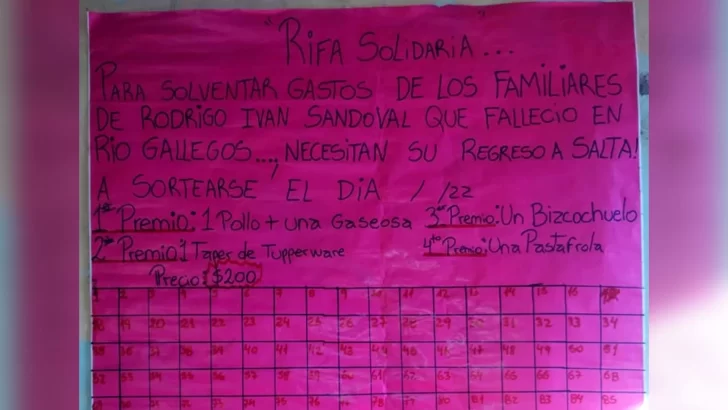 "RIFA SOLIDARIA"...
PARA SOLVENTAR GASTOS DE LOS FAMILIARES
DE RODRIGO IVAN SANDOVAL QUE FALLECIO EN
RIO GALLEGOS..., NECESITAN SU REGRESO A SALTA!
A SORTEARSE EL DIA / /22
1er Premio: 1 Pollo + una Gaseosa
2do Premio: 1 Taper de Tupperware
3er Premio: Un Bizcochuelo
4to Premio: Una Pastafrola
Precio: $200
1 2 3 4 5 6 7 8 9 10 11 12 13 14 15 16
18 19 20 21 22 23 24 25 26 27 28 29 30 31 32 33 34
35 36 37 38 39 40 41 42 43 44 45 46 47 48 49 50 51
52 53 54 55 56 57 58 59 60 61 62 63 64 65 66 67 68
69 70 71 72 73 74 75 76 77 78 79 80 81 82 83 84 85